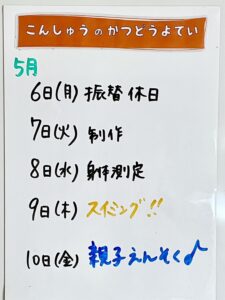 こんしゅうのかつどうよてい
5月
6日(月) 振替休日
7日(火) 制作
8日(水) 身体測定
9日(木) スイミング!!
10日(金) 親子えんそく♪